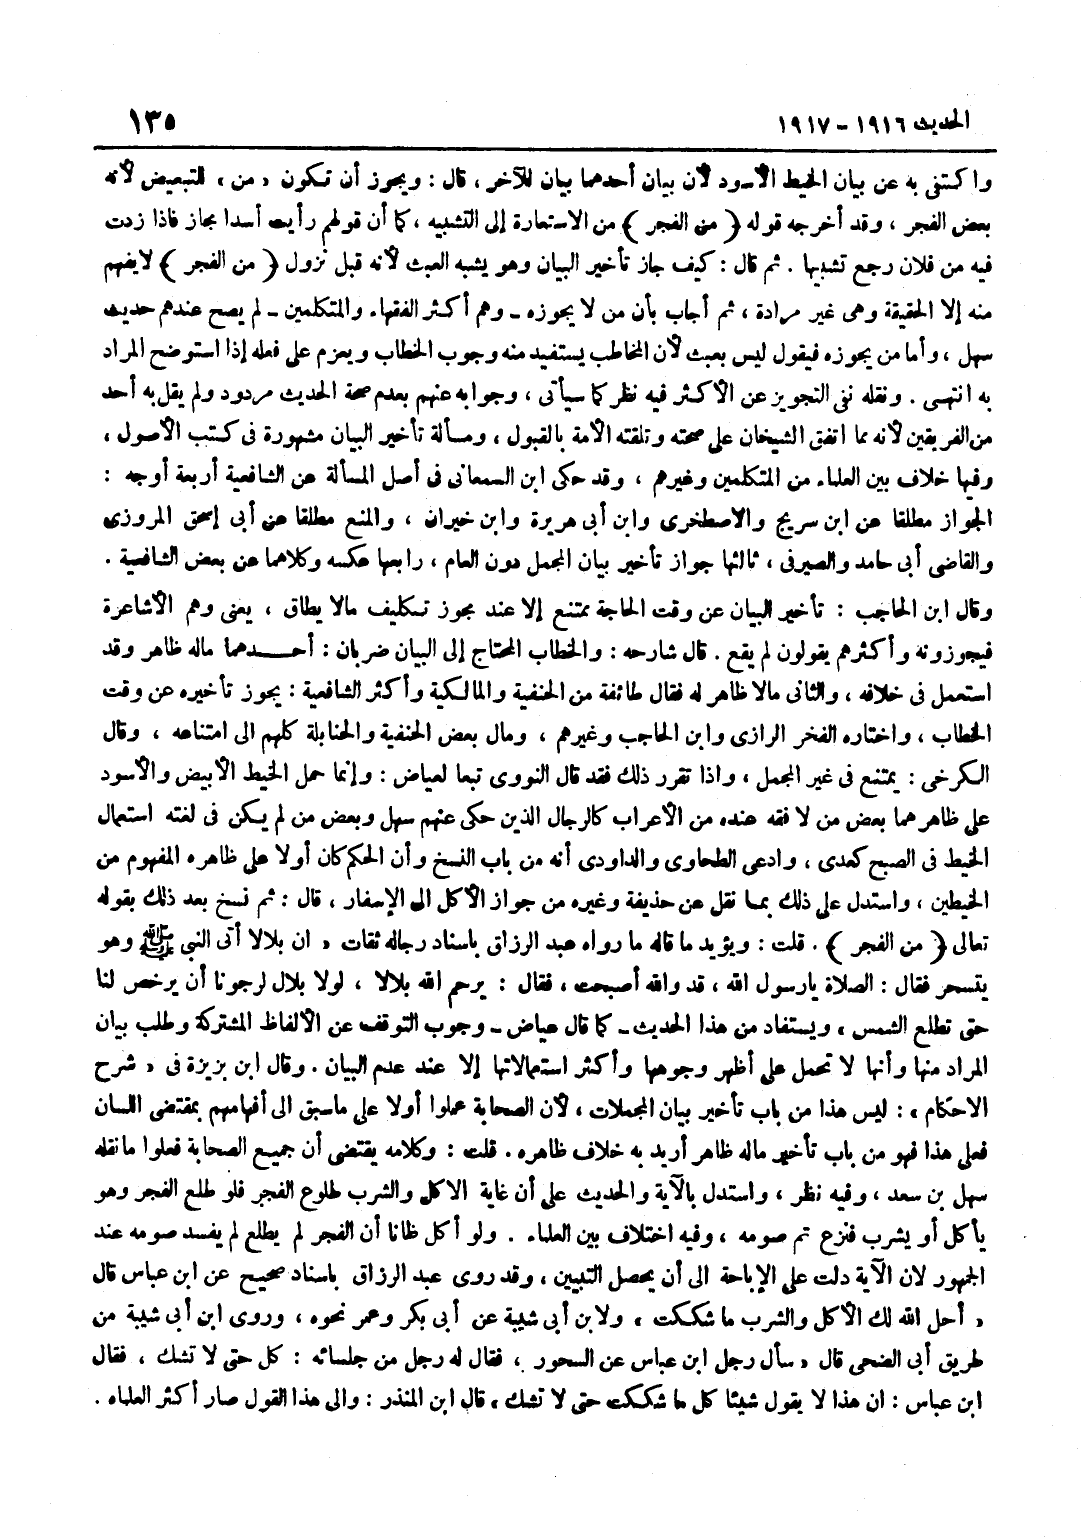 الحديث ١٩١٦ - ١٩١٧
١٣٥
واكتفى به عن بيان الخيط الأسود لأن بيان أحدهما بيان للآخر ، قال : ويجوز أن تكون « من » للتبعيض لأنه
بعض الفجر ، وقد أخرجه قوله ﴿ من الفجر ﴾ من الاستعارة إلى التشبيه ، كما أن قولهم رأيت أسدا مجاز فاذا زدت
فيه من فلان رجع تشبيها . ثم قال : كيف جاز تأخير البيان وهو يشبه العبث لأنه قبل نزول ﴿ من الفجر ﴾ لايفهم
منه إلا الحقيقة وهى غير مرادة ، ثم أجاب بأن من لا يجوزه ـ وهم أكثر الفقهاء والمتكلمين ـ لم يصح عندهم حديث
سهل ، وأما من يجوزه فيقول ليس بعبث لأن المخاطب يستفيد منه وجوب الخطاب ويعزم على فعله إذا استوضح المراد
به انتهى . ونقله نفى التجويز عن الأكثر فيه نظر كما سيأتى ، وجوابه عنهم بعدم صحة الحديث مردود ولم يقل به أحد
من الفريقين لأنه مما اتفق الشيخان على صحته وتلقته الأمة بالقبول ، ومسألة تأخير البيان مشهورة فى كتب الأصول ،
وفيها خلاف بين العلماء من المتكلمين وغيرهم ، وقد حكى ابن السمعانى فى أصل المسألة عن الشافعية أربعة أوجه :
الجواز مطلقا عن ابن سريج والاصطخرى وابن أبى هريرة وابن خيران ، والمنع مطلقا عن أبى إسحق المروزى
والقاضى أبى حامد والصيرفى ، ثالثها جواز تأخير بيان المجمل دون العام ، رابعها عكسه وكلاهما عن بعض الشافعية .
وقال ابن الحاجب : تأخير البيان عن وقت الحاجة بمتنع إلا عند مجوز تكليف مالا يطاق ، يعنى وهم الأشاعرة
فيجوزونه وأكثرهم يقولون لم يقع . قال شارحه : والخطاب المحتاج إلى البيان ضربان : أحدهما ماله ظاهر وقد
استعمل فى خلافه ، والثانى مالا ظاهر له فقال طائفة من الحنفية والمالكية وأكثر الشافعية : يجوز تأخيره عن وقت
الخطاب ، واختاره الفخر الرازى وابن الحاجب وغيرهم ، ومال بعض الحنفية والحنابلة كلهم الى امتناعه ، وقال
الكرخى : يمتنع فى غير المجمل ، واذا تقرر ذلك فقد قال النووى تبعا لعياض : وإنما حمل الخيط الأبيض والأسود
على ظاهرهما بعض من لا فقه عنده من الأعراب كالرجال الذين حكى عنهم سهل وبعض من لم يكن فى لغته استعمال
الخيط فى الصبح كعدى ، وادعى الطحاوى والداودى أنه من باب النسخ وأن الحكم كان أولا على ظاهره المفهوم من
الخيطين ، واستدل على ذلك بما نقل عن حذيفة وغيره من جواز الأكل الى الإسفار ، قال : ثم نسخ بعد ذلك بقوله
تعالى ﴿ من الفجر ﴾ . قلت : ويؤيد ما قاله ما رواه عبد الرزاق باسناد رجاله ثقات « ان بلالا أتى النبى ﷺ وهو
يتسحر فقال : الصلاة يارسول الله ، قد والله أصبحت ، فقال : يرحم الله بلالا ، لولا بلال لرجونا أن يرخص لنا
حتى تطلع الشمس ، ويستفاد من هذا الحديث ـ كما قال عياض ـ وجوب التوقف عن الألفاظ المشتركة وطلب بيان
المراد منها وأنها لا تحمل على أظهر وجوهها وأكثر استعمالاتها إلا عند عدم البيان . وقال ابن بزيزة فى « شرح
الاحكام » : ليس هذا من باب تأخير بيان المجملات ، لأن الصحابة عملوا أولا على ماسبق الى أفهامهم بمقتضى اللسان
فعلى هذا فهو من باب تأخير ماله ظاهر أريد به خلاف ظاهره . قلت : وكلامه يقتضى أن جميع الصحابة فعلوا مانقله
سهل بن سعد ، وفيه نظر ، واستدل بالآية والحديث على أن غاية الاكل والشرب طلوع الفجر فلو طلع الفجر وهو
يأكل أو يشرب فنزع تم صومه ، وفيه اختلاف بين العلماء . ولو أكل ظانا أن الفجر لم يطلع لم يفسد صومه عند
الجمهور لان الآية دلت على الإباحة الى أن يحصل التبيين ، وقد روى عبد الرزاق باسناد صحيح عن ابن عباس قال
« أحل الله لك الأكل والشرب ما شككت » ولابن أبى شيبة عن أبى بكر وعمر نحوه ، وروى ابن أبى شيبة من
طريق أبى الضحى قال « سأل رجل ابن عباس عن السحور ، فقال له رجل من جلسائه : كل حتى لا تشك ، فقال
ابن عباس : ان هذا لا يقول شيئا كل ما شككت حتى لا تشك ، قال ابن المنذر : والى هذا القول صار أكثر العلماء .